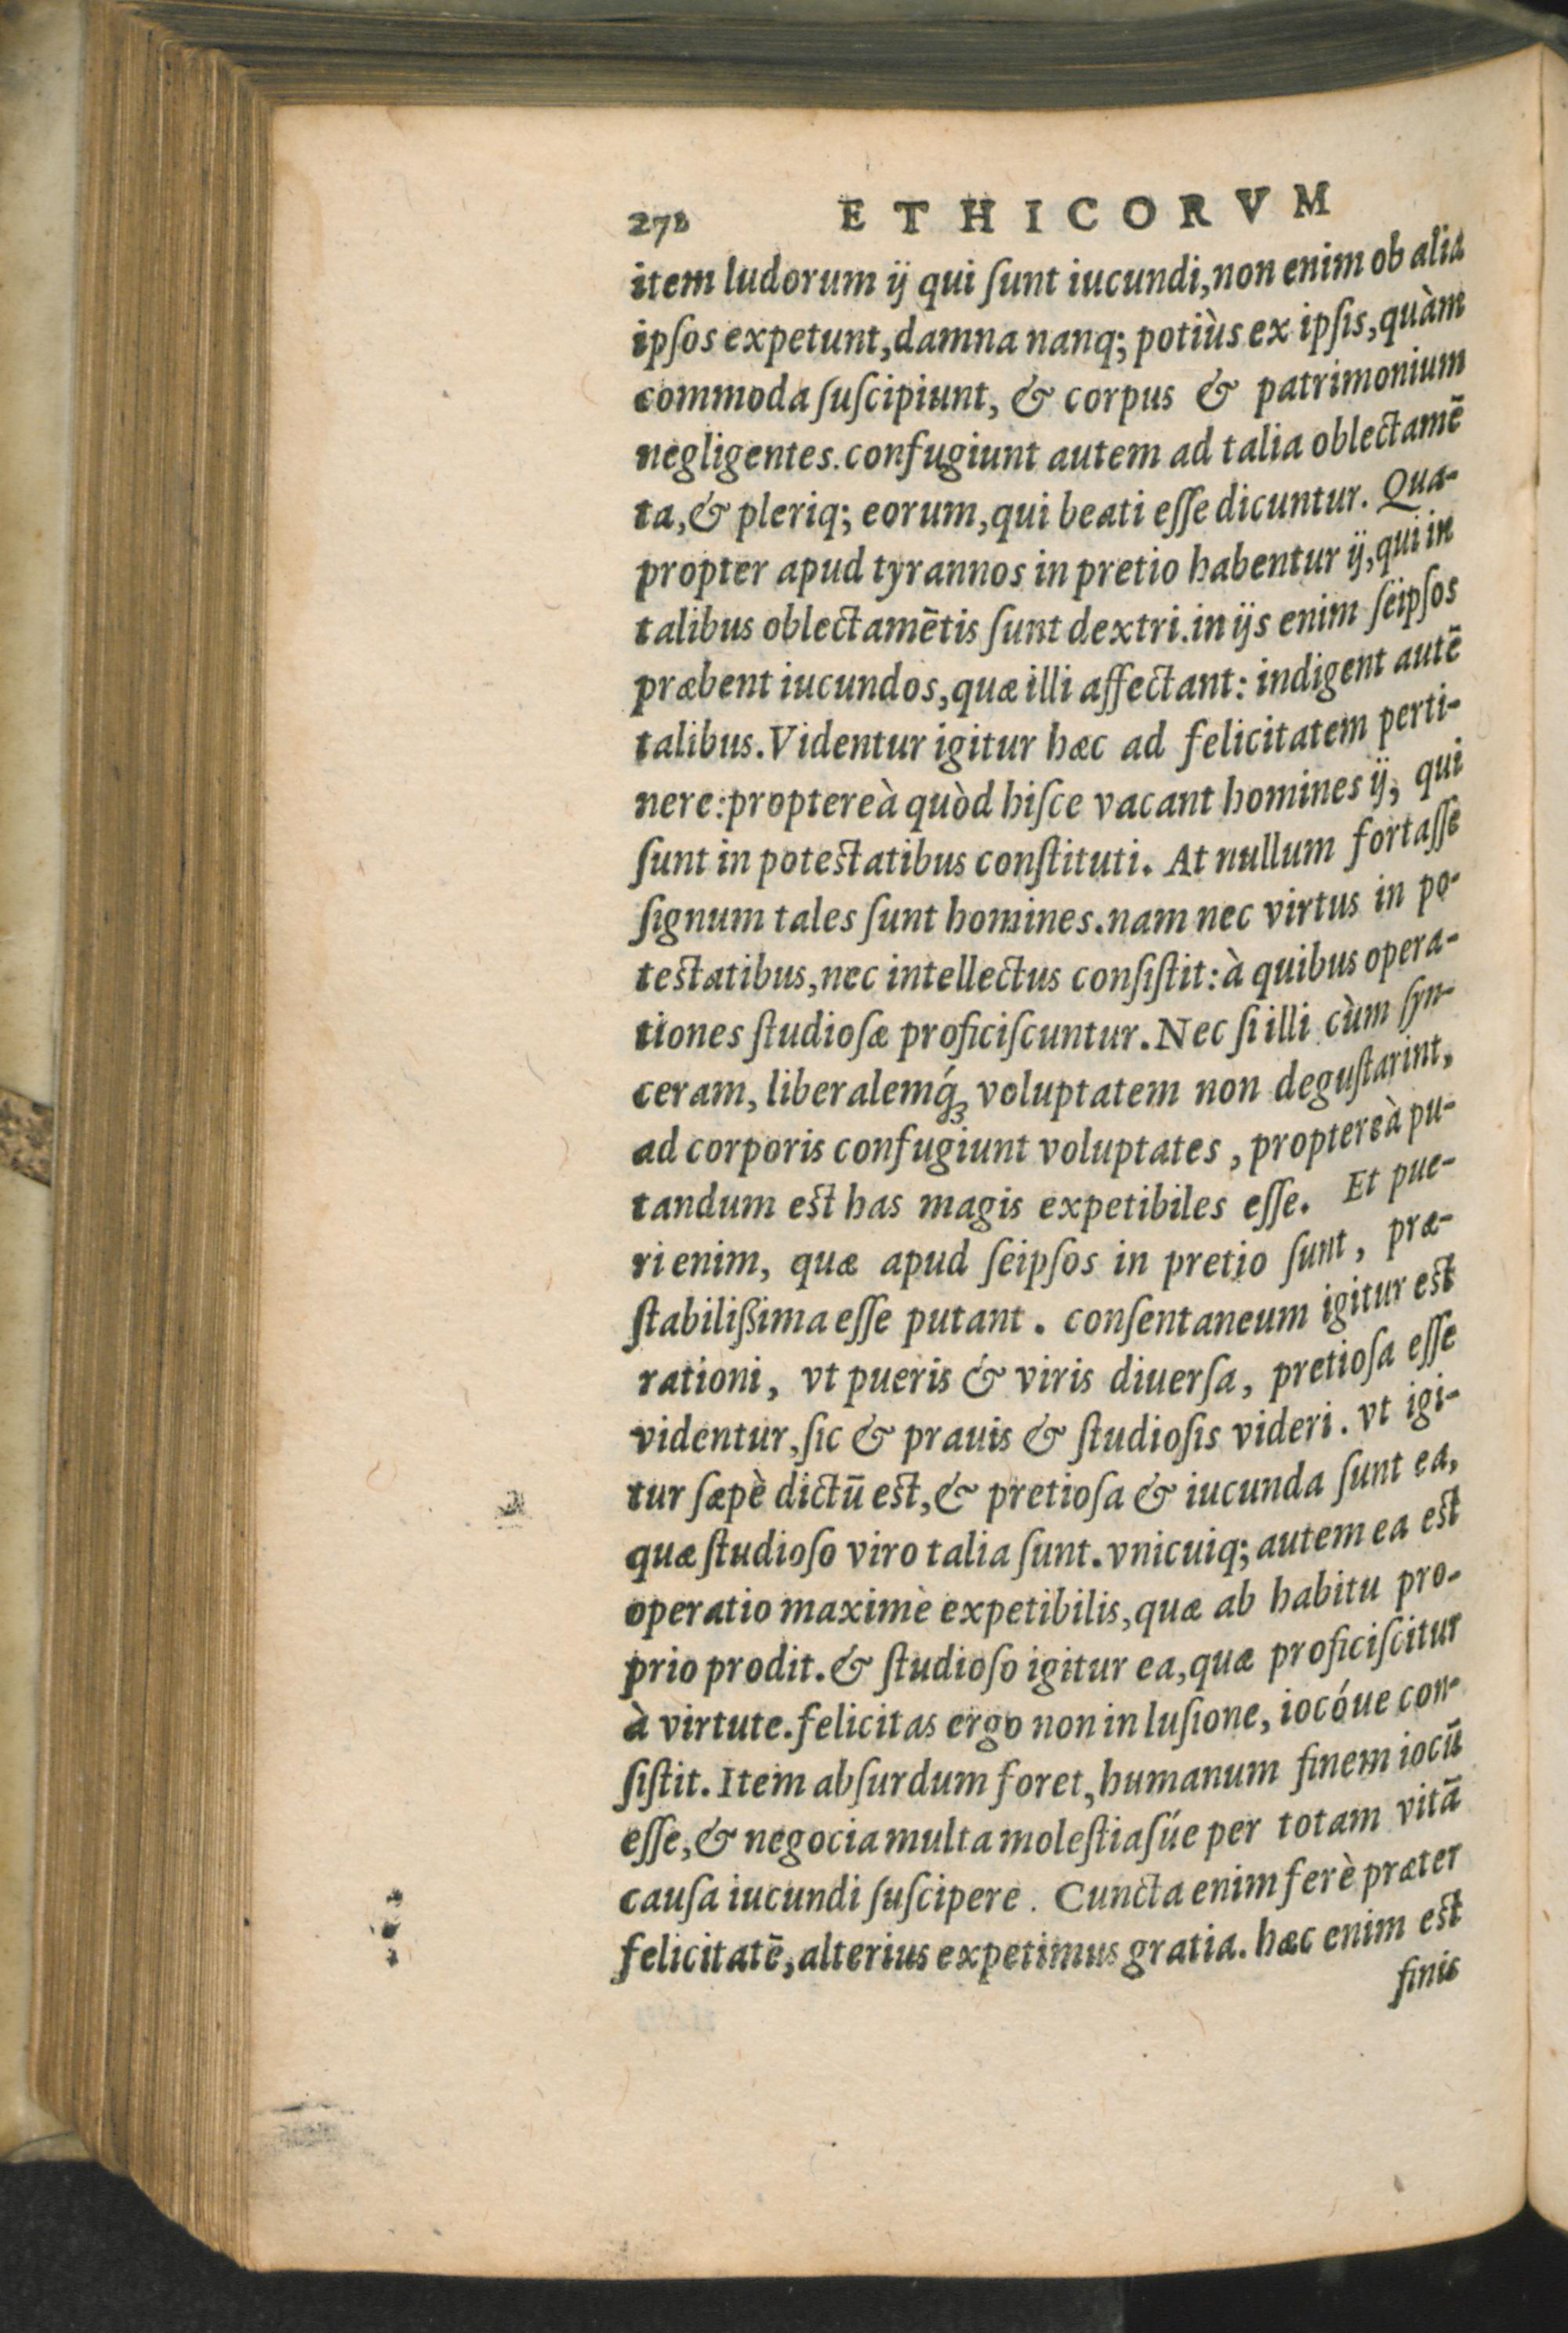 278 ETHICORVM
item ludorum ij qui ſunt iucundi, non enim ob alia
ipſos expetunt, damna nanq; potiùs ex ipſis, quàm
commoda ſuſcipiunt, & corpus & patrimonium
negligentes. confugiunt autem ad talia oblectamē
ta, & pleriq; eorum, qui beati eſſe dicuntur. Qua-
propter apud tyrannos in pretio habentur ij, qui in
talibus oblectamētis ſunt dextri. in ijs enim ſeipſos
præbent iucundos, quæ illi affectant: indigent autē
talibus. Videntur igitur hæc ad felicitatem perti-
nere: proptereà quòd hiſce vacant homines ij, qui
ſunt in poteſtatibus conſtituti. At nullum fortaſſe
ſignum tales ſunt homines. nam nec virtus in po-
teſtatibus, nec intellectus conſiſtit: à quibus opera-
tiones ſtudioſæ proficiſcuntur. Nec ſi illi cùm ſyn-
ceram, liberalemq́ꝫ voluptatem non deguſtarint,
ad corporis confugiunt voluptates, proptereà pu-
tandum eſt has magis expetibiles eſſe. Et pue-
ri enim, quæ apud ſeipſos in pretio ſunt, præ-
ſtabilißima eſſe putant. conſentaneum igitur eſt
rationi, vt pueris & viris diuerſa, pretioſa eſſe
videntur, ſic & prauis & ſtudioſis videri. vt igi-
tur ſæpè dictū eſt, & pretioſa & iucunda ſunt ea,
quæ ſtudioſo viro talia ſunt. vnicuiq; autem ea eſt
operatio maximè expetibilis, quæ ab habitu pro-
prio prodit. & ſtudioſo igitur ea, quæ proficiſcitur
à virtute. felicitas ergo non in luſione, iocóue con-
ſiſtit. Item abſurdum foret, humanum finem iocū
eſſe, & negocia multa moleſtiaſúe per totam vitā
cauſa iucundi ſuſcipere. Cuncta enim ferè præter
felicitatē, alterius expetimus gratia. hæc enim eſt
finis